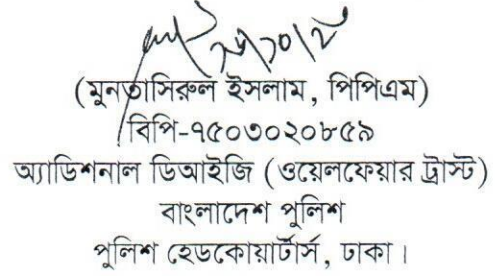 (মুনতাসিরুল ইসলাম, পিপিএম)
বিপি-৭৫০৩০২০৮৫৯
অ্যাডিশনাল ডিআইজি (ওয়েলফেয়ার ট্রাস্ট)
বাংলাদেশ পুলিশ
পুলিশ হেডকোয়ার্টার্স, ঢাকা।